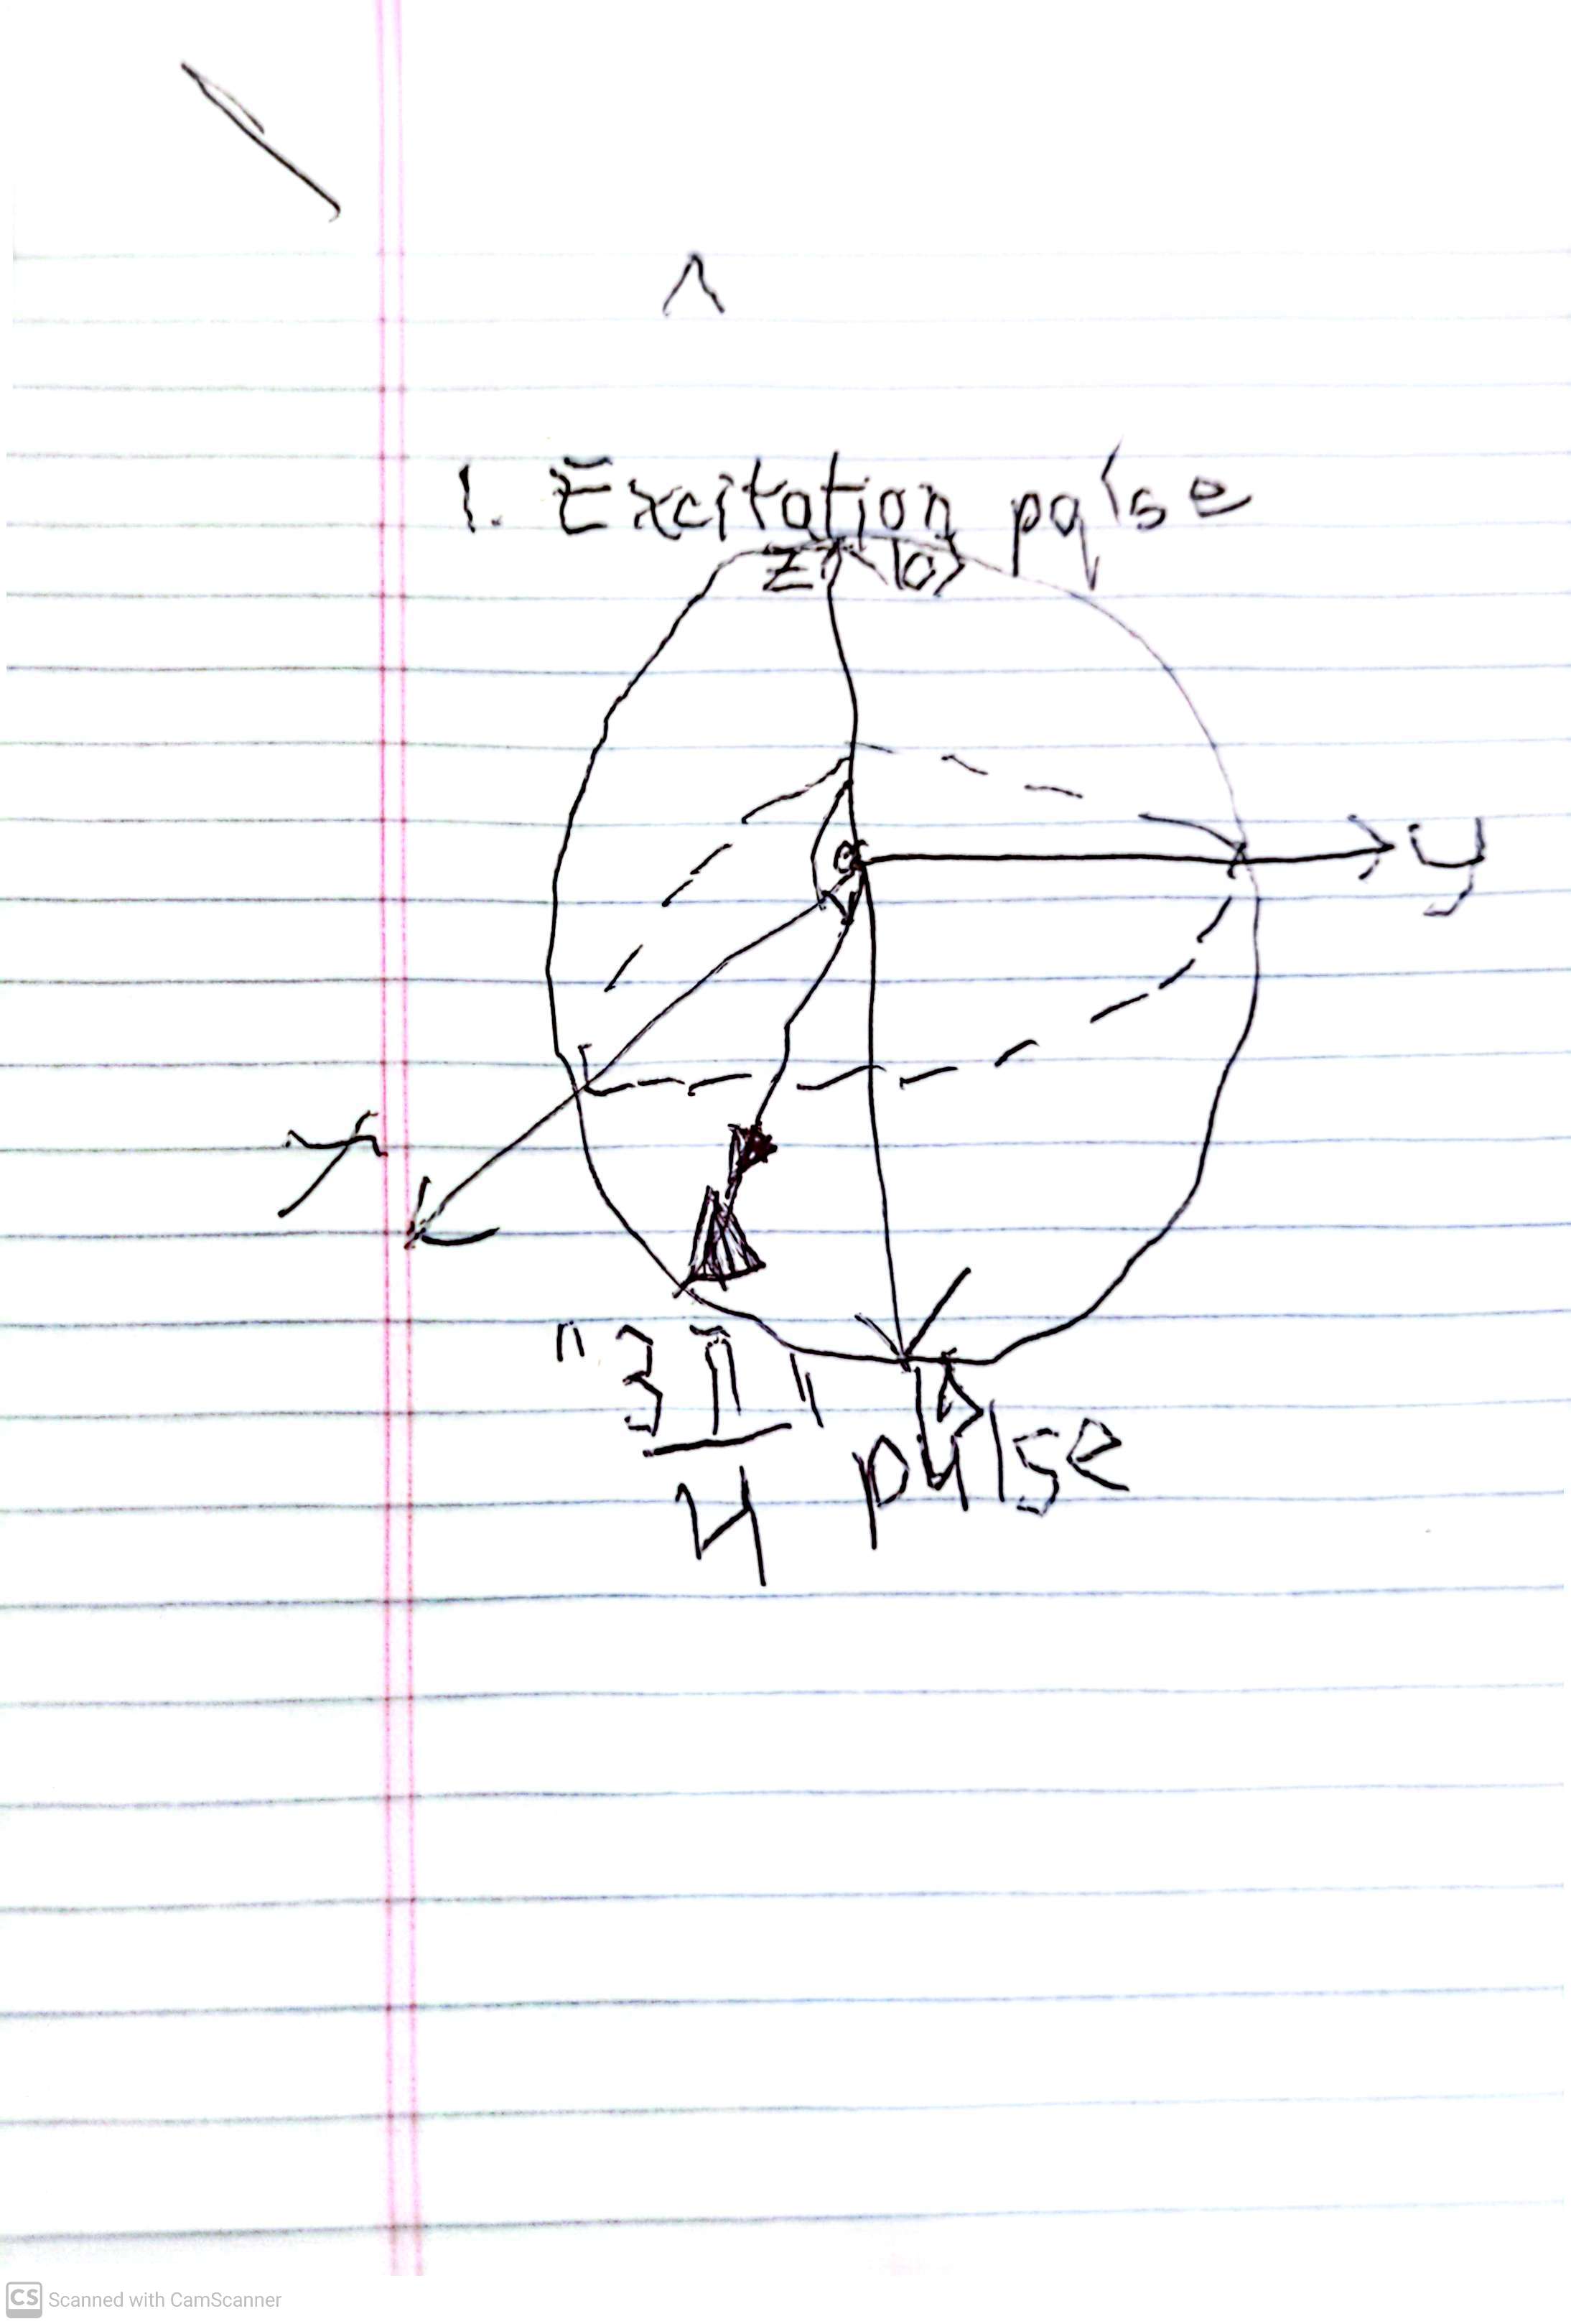 1. Excitation pulse
z |0⟩
y
x
"3π" pulse
4
CS Scanned with CamScanner